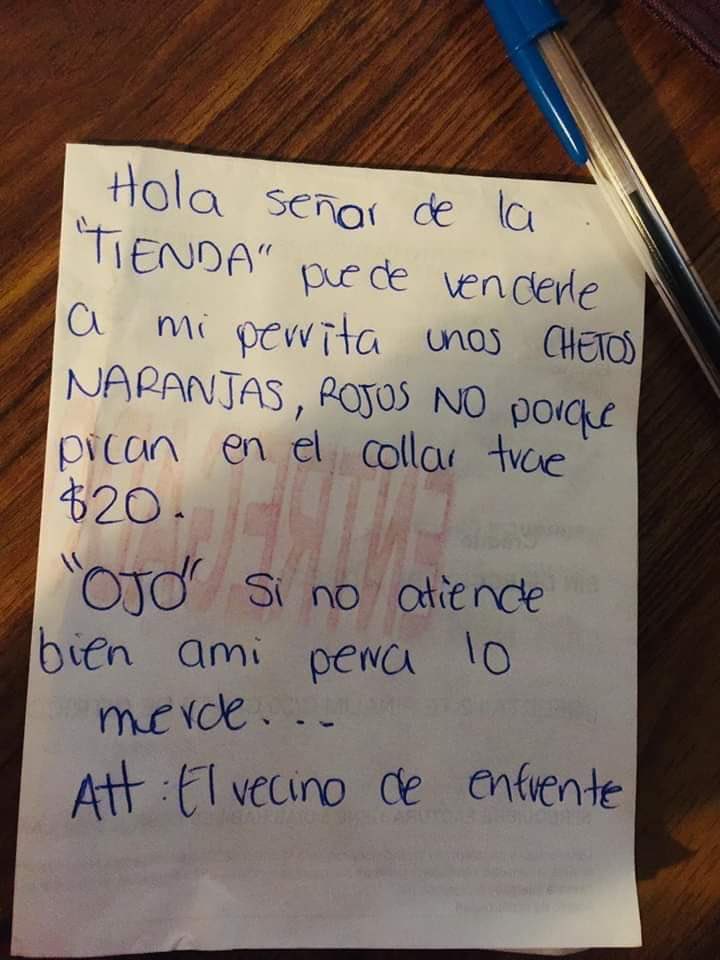 Hola señor de la
"TIENDA" puede venderle
a mi perrita unos CHETOS
NARANJAS, ROJOS NO porque
pican en el collar trae
$20.
"OJO" si no atiende
bien ami perra lo
muerde...
Att: El vecino de enfrente
ENTREGADO